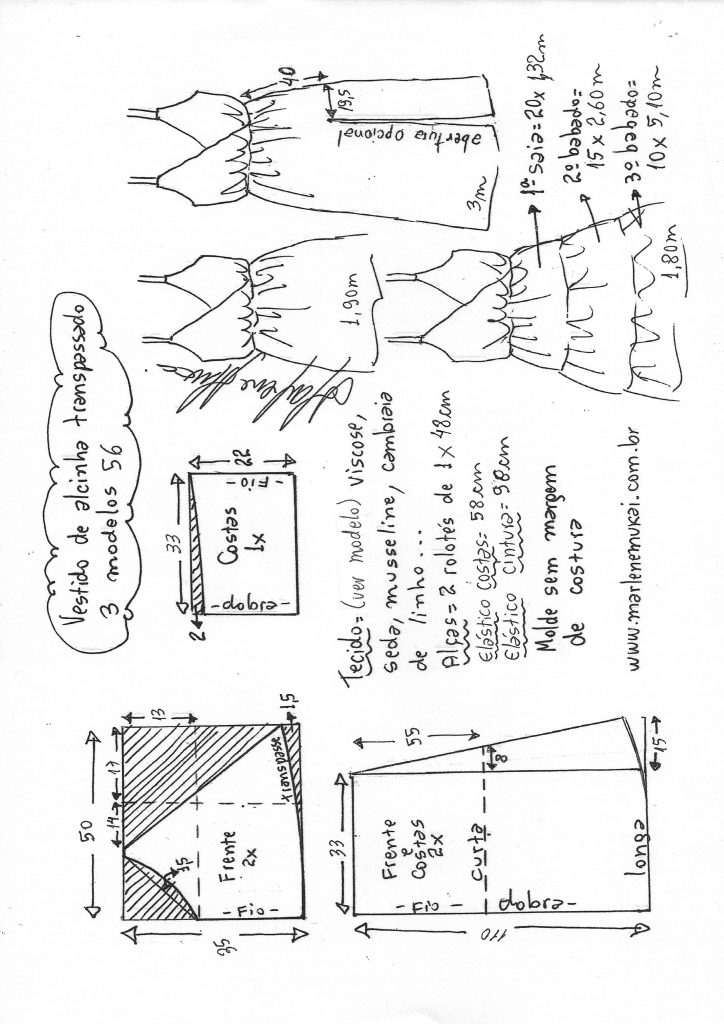 Vestido de alcinha transpassado
3 modelos 56
50
14
17
13
35
3,5
Frente
2x
- Fio -
transpasse
1,5
33
22
2
Costas
1x
- Fio -
- dobra -
33
110
55
8
15
Frente
e
Costas
2x
curta
longa
- Fio -
dobra -
Tecido= (ver modelo) Viscose,
seda, musseline, cambraia
de linho...
Alças= 2 rolotés de 1 x 48cm
Elástico Costas= 58cm
Elástico cintura= 98cm
Molde sem margem
de costura
www.marlenemukai.com.br
Marlene Mukai
1,90m
40
19,5
abertura opcional
3m
1ª saia= 20 x 1,32m
2º babado=
15 x 2,60m
3º babado=
10 x 5,10m
1,80m